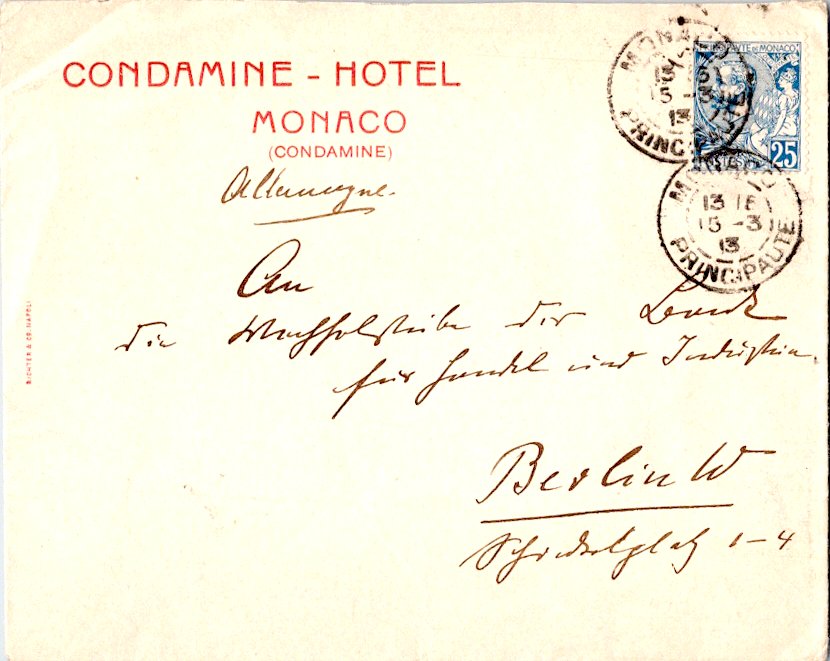 CONDAMINE - HOTEL
MONACO
(CONDAMINE)
PRINCIPAUTE DE MONACO
POSTES
25
MONACO
15 -3
13
PRINCIPAUTE
MONACO
13 15
15 -3
13
PRINCIPAUTE
Allemagne.
An
die Wechselstube der Bank
für Handel und Industrie.
Berlin W
1-4
RICHTER & CO. NAPOLI